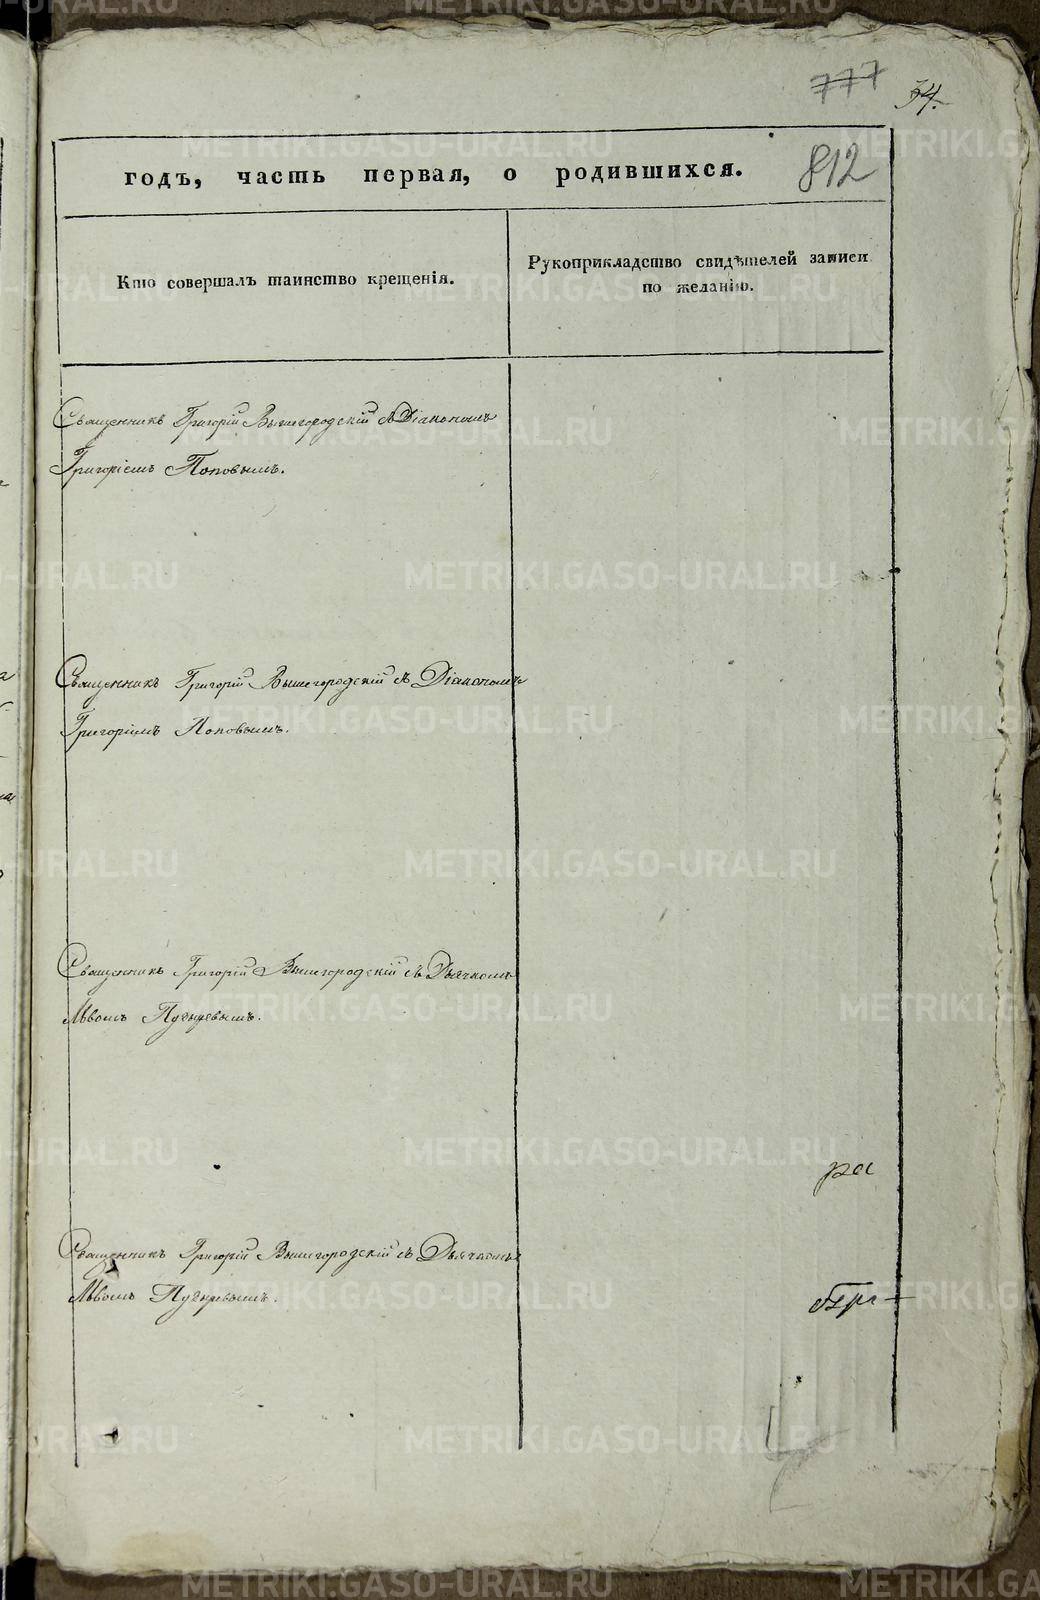 777 34.
812
годъ, часть первая, о родившихся.
Кто совершалъ таинство крещенія.
Рукоприкладство свидѣтелей записи
по желанію.
Священникъ Григорій Вышегородскій съ Діакономъ
Григоріемъ Поповымъ.
Священникъ Григорій Вышегородскій съ Діакономъ
Григоріемъ Поповымъ.
Священникъ Григорій Вышегородскій съ Дьячкомъ
Львомъ Пузыревымъ.
ра
Священникъ Григорій Вышегородскій съ Дьячкомъ
Львомъ Пузыревымъ.
METRIKI.GASO-URAL.RU